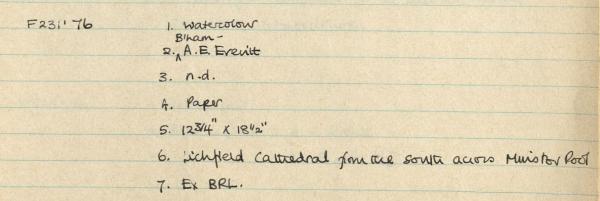 F231'76 1. Watercolour
B'ham -
2. ^ A.E. Everitt
3. n.d.
4. Paper
5. 12 3/4" x 18 1/2"
6. Lichfield Cathedral from the south across Minster Pool
7. Ex BRL.